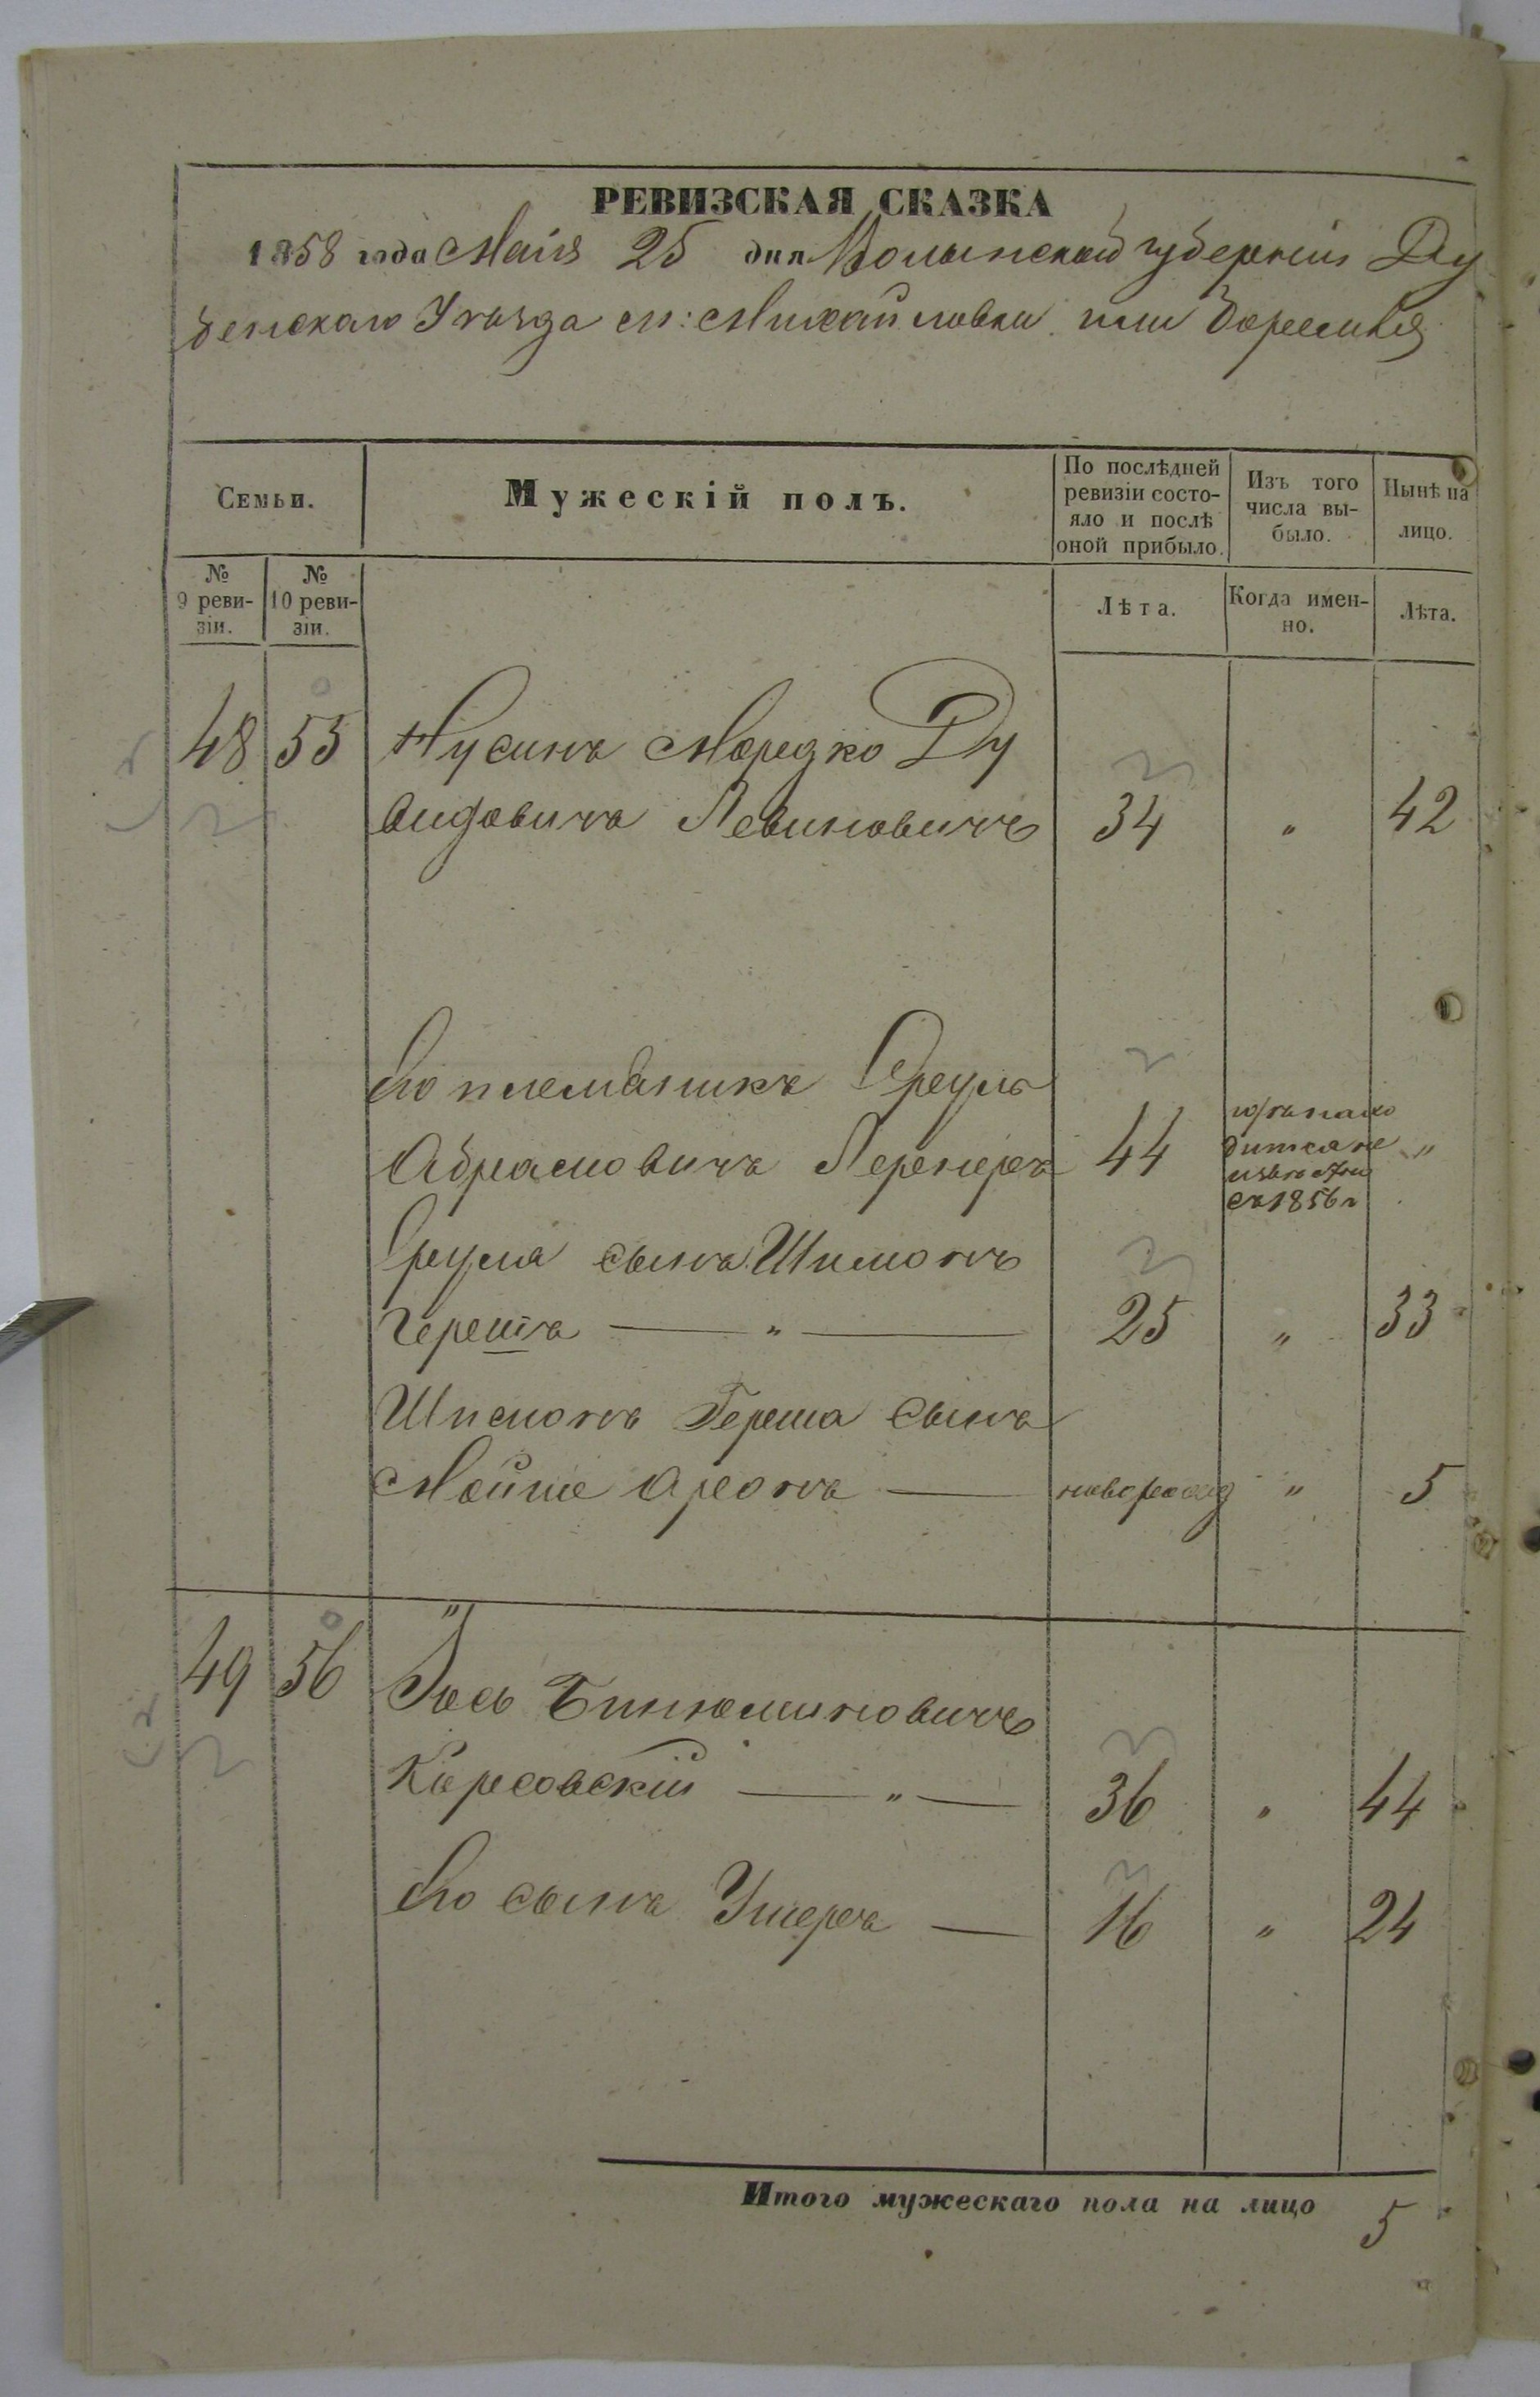 РЕВИЗСКАЯ СКАЗКА
1858 года Маія 25 дня Волынской губерніи Ду
бенскаго Уѣзда м: Михайловки или Боремля
Семьи.
Мужескій полъ.
По послѣдней ревизіи состо-
яло и послѣ
оной прибыло.
Изъ того
числа вы-
было.
Нынѣ на
лицо.
№
9 реви-
зіи.
№
10 реви-
зіи.
Лѣта.
Когда имен-
но.
Лѣта.
48 55 Нусинъ Мордко Ду
видовичъ Левиновичъ 34 " 42
Его племяникъ Сруль
Абрамовичъ Лернеръ 44 "
съ 1856 г
Сруля сынъ Шимонъ
Гершъ — " — 25 " 33
Шимонъ Герша сынъ
Мойше Аронъ — новорожд " 5
49 56 "
Іось Бинюминовичъ
Карсовскій — " — 36 " 44
Его сынъ Ушеръ — 16 " 24
Итого мужескаго пола на лицо 5